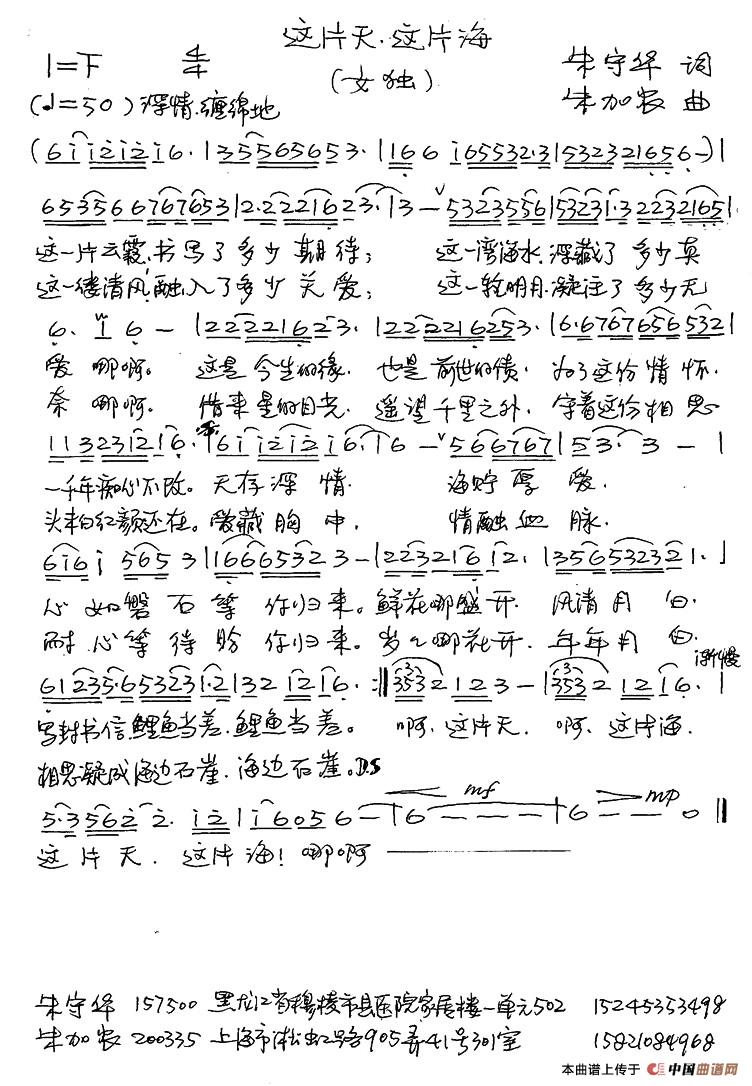 这片天.这片海
1=F 4/4 (女独) 朱守华 词
(♩=50)深情.缠绵地 朱加农 曲
(6 i i 2 i 2 i 6. | 3 5 5 6 5 6 5 3. | 1 6 6 i 6 5 5 3 2. 3 | 5 3 2 3 2 1 6 5 6 -)|
6 5 3 5 6 6 7 6 7 6 5 3 | 2. 2 2 2 1 6 2 3. | 3 - 5 3 2 3 5 5 6 | 5 3 2 3 1. 3 2 2 3 2 1 6 5 |
这一片云霞.书写了多少期待; 这一湾海水.深藏了多少真
这一缕清风,融入了多少关爱; 这一轮明月.凝注了多少无
6. 1 6 - | 2 2 2 2 1 6 2 3. | 2 2 2 2 1 6 2 5 3. | 6. 6 7 6 7 6 5 6 5 3 2 |
爱哪啊。这是今生的缘.也是前世的债.为了这份情怀.
奈哪啊。借来星的目光.遥望千里之外.守着这份相思
1 1 3 2 3 1 2 1 6. | 6 i i 2 i 2 i 6. | 6 - 5 6 6 7 6 7 | 5 3. 3 - |
一千年痴心不改。天存深情. 海贮厚爱.
头未白红颜还在。爱藏胸中. 情融血脉.
6 i 6 i 5 6 5 3 | 1 6 6 6 5 3 2 3 - | 2 2 3 2 1 6 1 2. | 3 5 6 5 3 2 3 2 1. |
心如磐石等你归来。鲜花哪盛开.风清月白.
耐心等待盼你归来。岁岁哪花开.年年月白. 渐慢
6 1 2 3 5. 6 5 3 2 3 1. 2 | 3 2 1 2 1 6. :‖ 3 5 3 2 1 2 3 - | 3 5 3 2 1 2 1 6. |
写封书信鲤鱼当差.鲤鱼当差。 啊.这片天.啊.这片海.
相思凝成海边石崖.海边石崖。D.S
mf mp
5. 3 5 6 2 2. i 2 | i 6 0 5 6 - | 6 - - - | 6 - - 0 ‖
这片天.这片海!哪啊
朱守华 157500 黑龙江省穆棱市县医院家属楼一单元502 15245353498
朱加农 200335 上海市淞虹路905弄41号301室 15821084968
本曲谱上传于 中国曲谱网